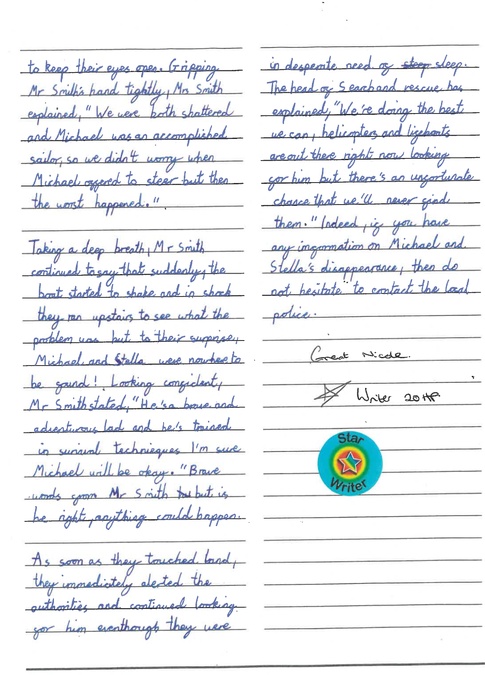 to keep their eyes open. Gripping
Mr Smith's hand tightly, Mrs Smith
explained, "We were both shattered
and Michael was an accomplished
sailor, so we didn't worry when
Michael offered to steer but then
the worst happened."
Taking a deep breath, Mr Smith
continued to say that suddenly, the
boat started to shake and in shock
they ran upstairs to see what the
problem was but to their surprise,
Michael and Stella were nowhere to
be found! Looking confident,
Mr Smith stated, "He's a brave and
adventurous lad and he's trained
in survival techniques I'm sure
Michael will be okay. "Brave
words from Mr Smith but is
he right, anything could happen.
As soon as they touched land,
they immediately alerted the
authorities and continued looking
for him eventhough they were
in desperate need of sleep.
The head of Search and rescue has
explained, "We're doing the best
we can, helicopters and lifeboats
are out there right now looking
for him but there's an unfortunate
chance that we'll never find
them." Indeed, if you have
any information on Michael and
Stella's disappearance, then do
not hesitate to contact the local
police.
Great Nicole.
Writer 20HP
Star
Writer